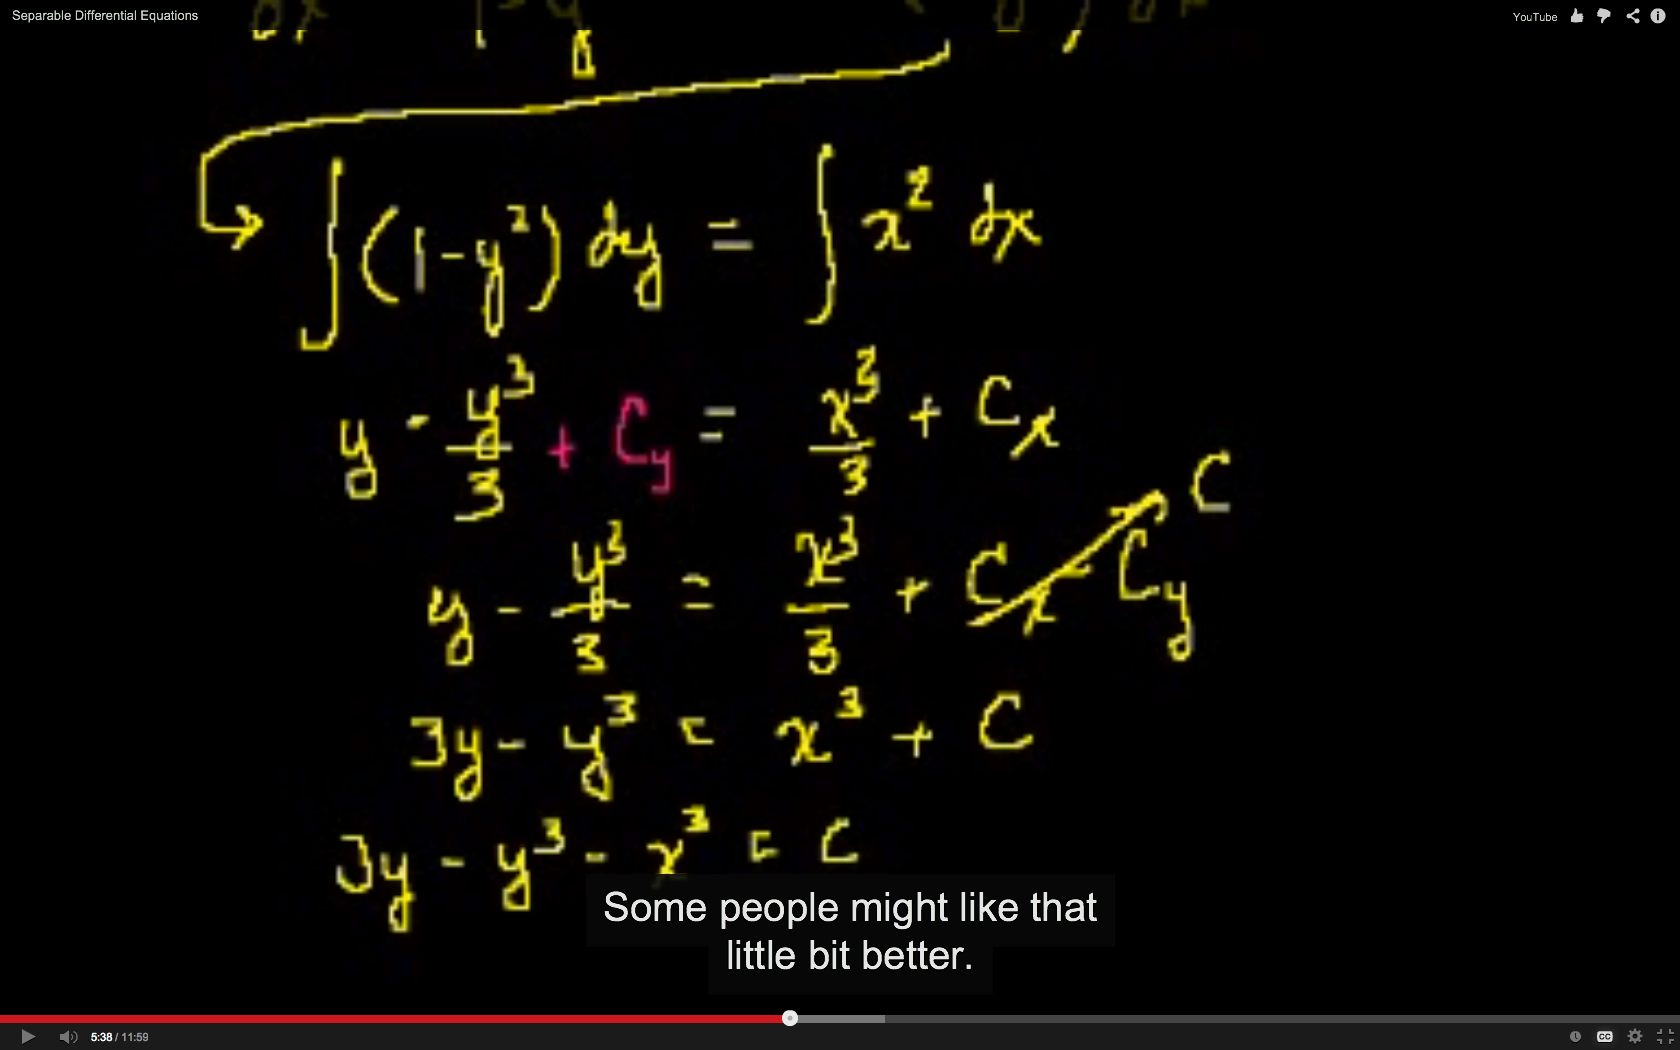 Separable Differential Equations
YouTube
∫(1-y²) dy = ∫ x² dx
y - y³/3 + C_y = x³/3 + C_x
C
y - y³/3 = x³/3 + C_x - C_y
3y - y³ = x³ + C
3y - y³ - x³ = C
Some people might like that
little bit better.
5:38 / 11:59
CC